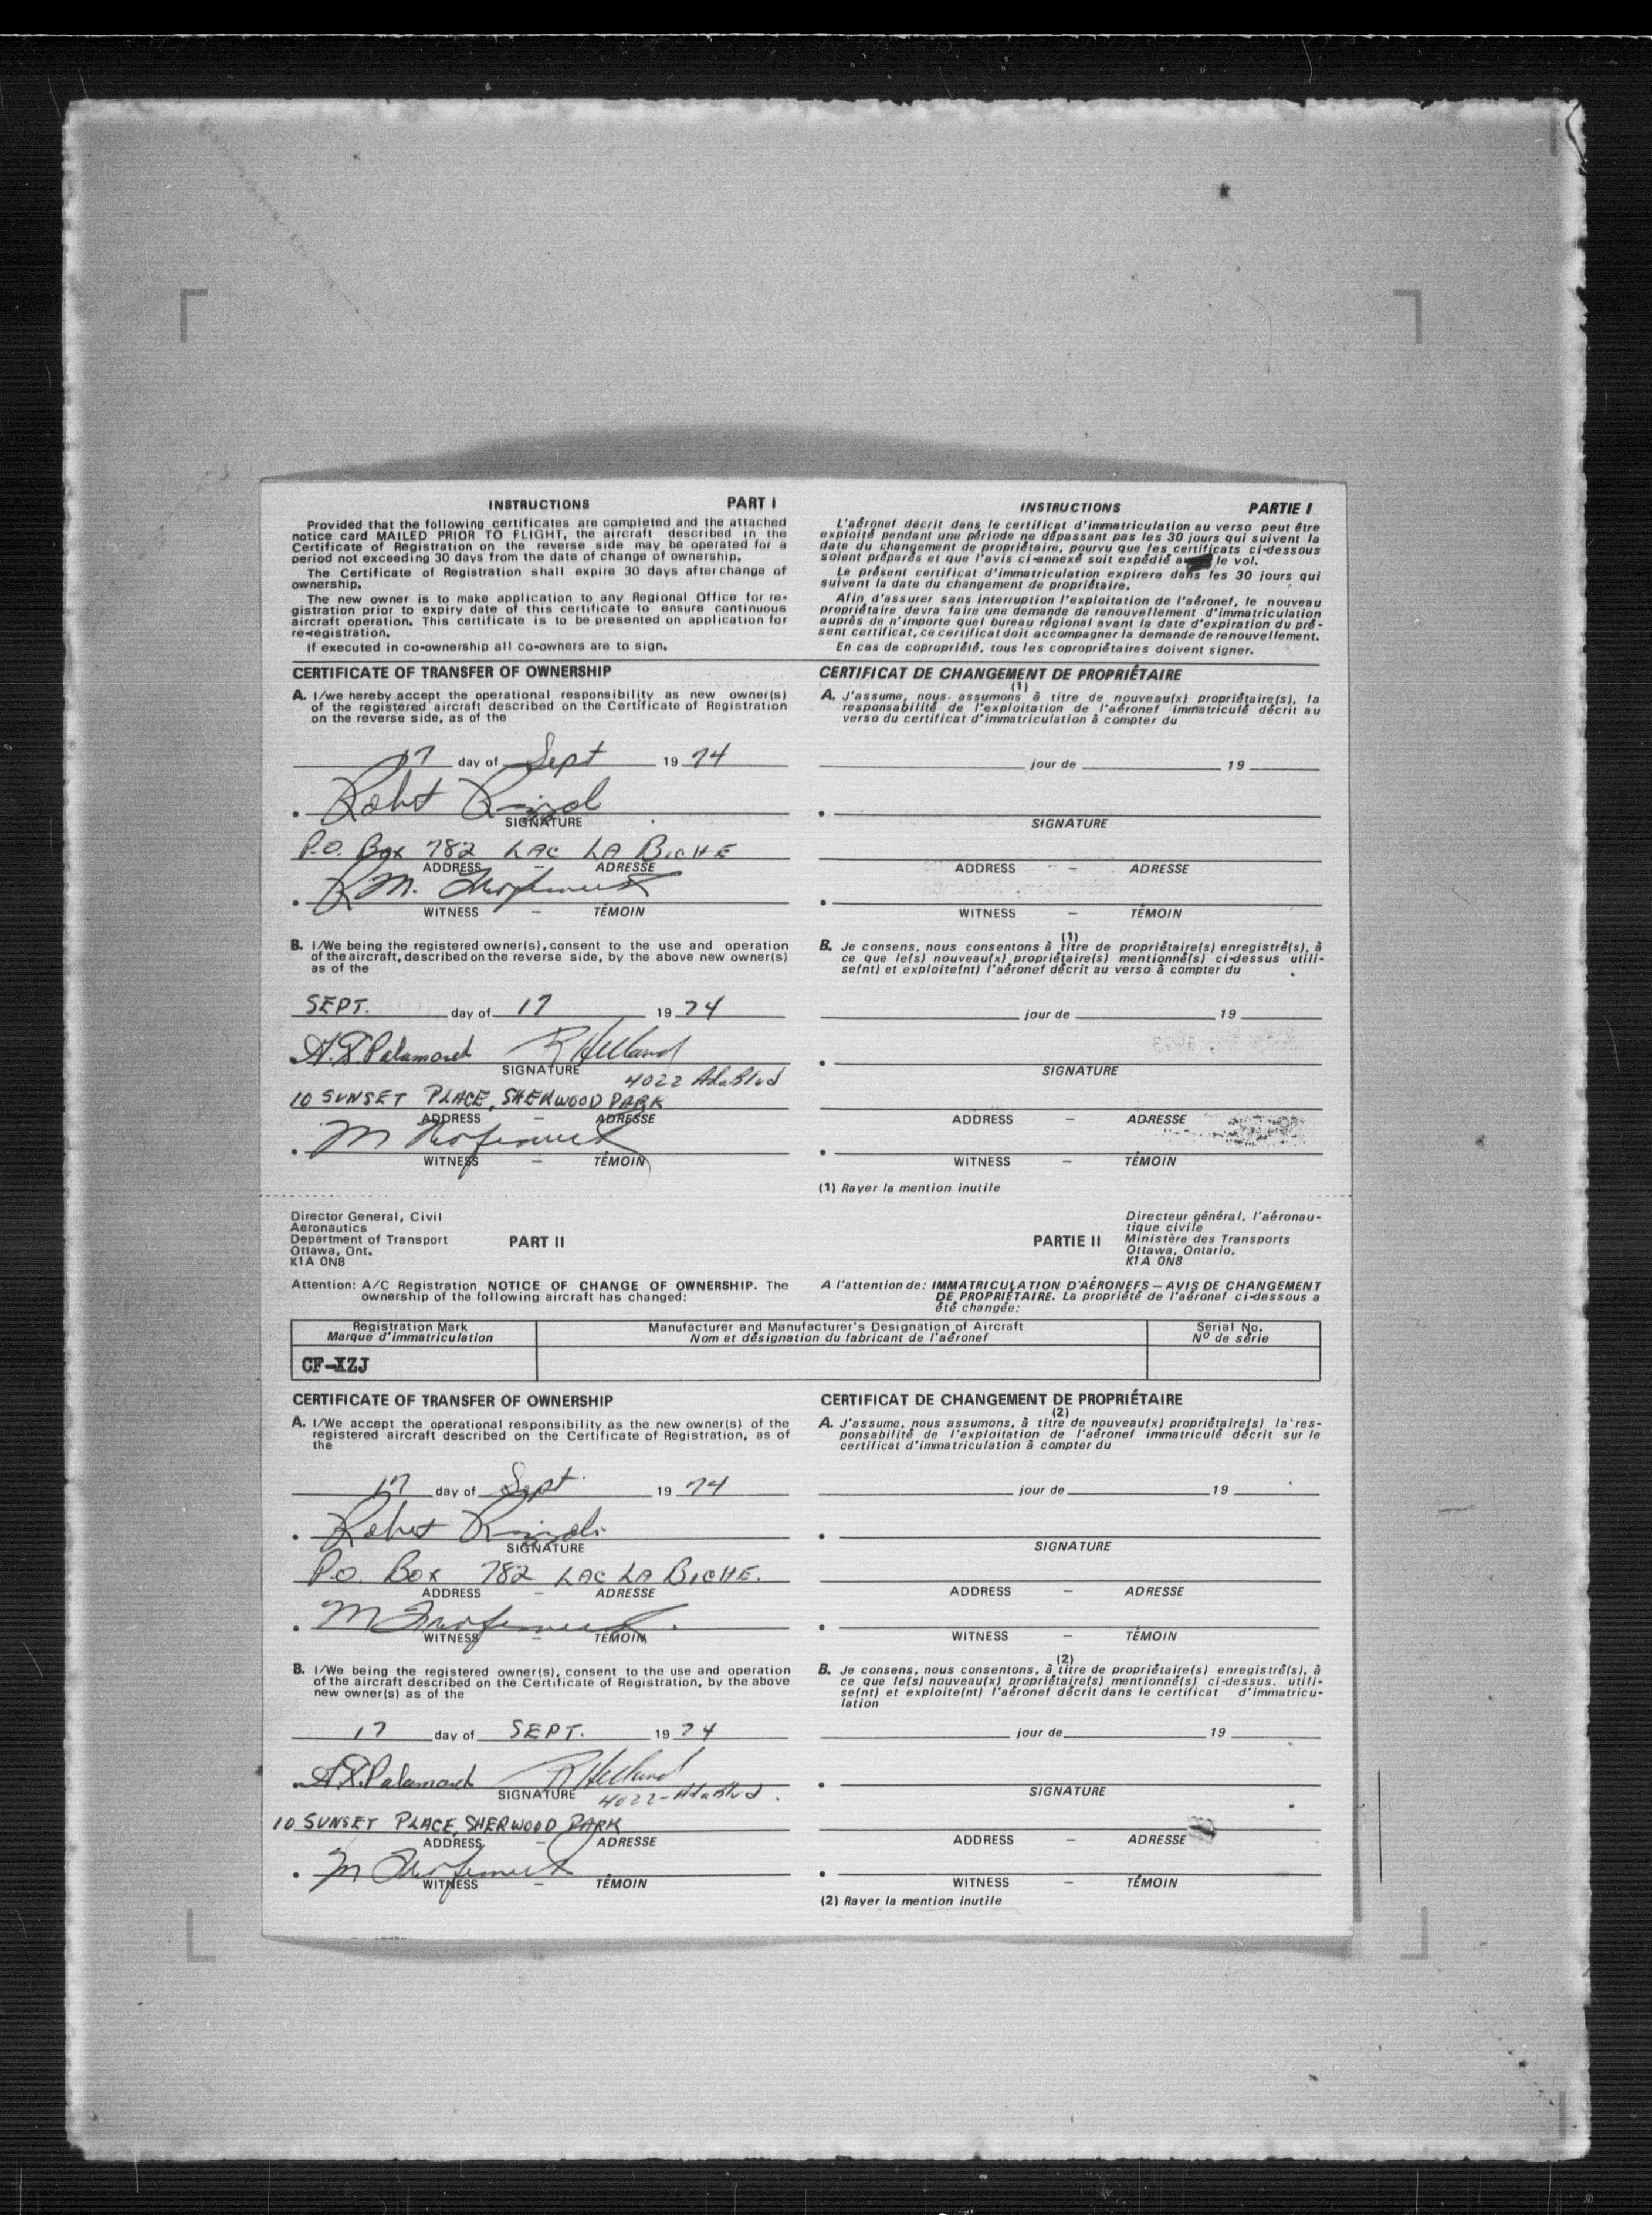 INSTRUCTIONS PART I
Provided that the following certificates are completed and the attached
notice card MAILED PRIOR TO FLIGHT, the aircraft described in the
Certificate of Registration on the reverse side may be operated for a
period not exceeding 30 days from the date of change of ownership.
The Certificate of Registration shall expire 30 days after change of
ownership.
The new owner is to make application to any Regional Office for re-
gistration prior to expiry date of this certificate to ensure continuous
aircraft operation. This certificate is to be presented on application for
re-registration.
If executed in co-ownership all co-owners are to sign.
CERTIFICATE OF TRANSFER OF OWNERSHIP
A. I/we hereby accept the operational responsibility as new owner(s)
of the registered aircraft described on the Certificate of Registration
on the reverse side, as of the
17 day of Sept 19 74
SIGNATURE
P.O. Box 782 LAC LA BICHE
ADDRESS – ADRESSE
WITNESS – TÉMOIN
B. I/We being the registered owner(s), consent to the use and operation
of the aircraft, described on the reverse side, by the above new owner(s)
as of the
SEPT. day of 17 19 74
R Helland
SIGNATURE
4022 Ada Blvd
10 SUNSET PLACE, SHERWOOD PARK
ADDRESS – ADRESSE
WITNESS – TÉMOIN
INSTRUCTIONS PARTIE I
L'aéronef décrit dans le certificat d'immatriculation au verso peut être
exploité pendant une période ne dépassant pas les 30 jours qui suivent la
date du changement de propriétaire, pourvu que les certificats ci-dessous
soient préparés et que l'avis ci-annexé soit expédié le vol.
Le présent certificat d'immatriculation expirera dans les 30 jours qui
suivent la date du changement de propriétaire.
Afin d'assurer sans interruption l'exploitation de l'aéronef, le nouveau
propriétaire devra faire une demande de renouvellement d'immatriculation
auprès de n'importe quel bureau régional avant la date d'expiration du pré-
sent certificat, ce certificat doit accompagner la demande de renouvellement.
En cas de copropriété, tous les copropriétaires doivent signer.
CERTIFICAT DE CHANGEMENT DE PROPRIÉTAIRE
(1)
A. J'assume, nous assumons à titre de nouveau(x) propriétaire(s), la
responsabilité de l'exploitation de l'aéronef immatriculé décrit au
verso du certificat d'immatriculation à compter du
jour de 19
SIGNATURE
ADDRESS – ADRESSE
WITNESS – TÉMOIN
(1)
B. Je consens, nous consentons à titre de propriétaire(s) enregistré(s), à
ce que le(s) nouveau(x) propriétaire(s) mentionné(s) ci-dessus utili-
se(nt) et exploite(nt) l'aéronef décrit au verso à compter du
jour de 19
SIGNATURE
ADDRESS – ADRESSE
WITNESS – TÉMOIN
(1) Rayer la mention inutile
Director General, Civil
Aeronautics
Department of Transport
Ottawa, Ont.
K1A 0N8
PART II
PARTIE II
Directeur général, l'aéronau-
tique civile
Ministère des Transports
Ottawa, Ontario.
K1A 0N8
Attention: A/C Registration NOTICE OF CHANGE OF OWNERSHIP. The
ownership of the following aircraft has changed:
A l'attention de: IMMATRICULATION D'AÉRONEFS – AVIS DE CHANGEMENT
DE PROPRIÉTAIRE. La propriété de l'aéronef ci-dessous a
été changée:
Registration Mark
Marque d'immatriculation
Manufacturer and Manufacturer's Designation of Aircraft
Nom et désignation du fabricant de l'aéronef
Serial No.
Nº de série
CF-XZJ
CERTIFICATE OF TRANSFER OF OWNERSHIP
A. I/We accept the operational responsibility as the new owner(s) of the
registered aircraft described on the Certificate of Registration, as of
the
17 day of Sept. 19 74
SIGNATURE
P.O. Box 782 LAC LA BICHE.
ADDRESS – ADRESSE
WITNESS – TÉMOIN
B. I/We being the registered owner(s), consent to the use and operation
of the aircraft described on the Certificate of Registration, by the above
new owner(s) as of the
17 day of SEPT. 19 74
R Helland
SIGNATURE
4022 - Ada Blvd.
10 SUNSET PLACE, SHERWOOD PARK
ADDRESS – ADRESSE
WITNESS – TÉMOIN
CERTIFICAT DE CHANGEMENT DE PROPRIÉTAIRE
(2)
A. J'assume, nous assumons, à titre de nouveau(x) propriétaire(s) la res-
ponsabilité de l'exploitation de l'aéronef immatriculé décrit sur le
certificat d'immatriculation à compter du
jour de 19
SIGNATURE
ADDRESS – ADRESSE
WITNESS – TÉMOIN
(2)
B. Je consens, nous consentons, à titre de propriétaire(s) enregistré(s), à
ce que le(s) nouveau(x) propriétaire(s) mentionné(s) ci-dessus. utili-
se(nt) et exploite(nt) l'aéronef décrit dans le certificat d'immatricu-
lation
jour de 19
SIGNATURE
ADDRESS – ADRESSE
WITNESS – TÉMOIN
(2) Rayer la mention inutile